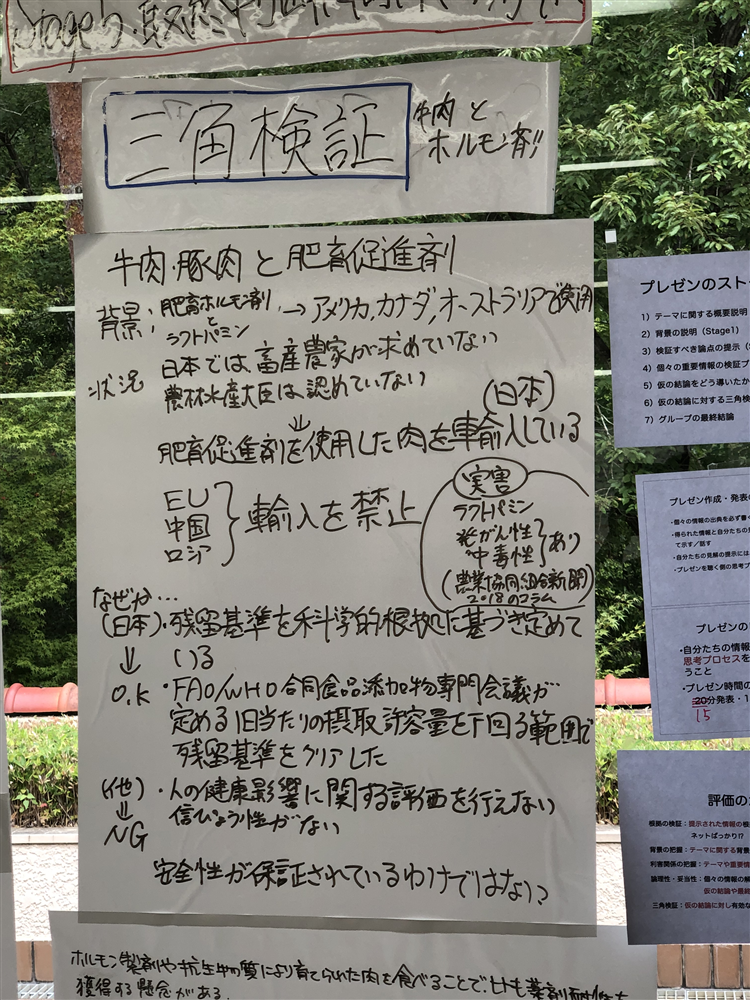 三角検証
牛肉と
ホルモン剤!!
牛肉・豚肉と肥育促進剤
背景; 肥育ホルモン剤
と
ラクトパミン
→アメリカ, カナダ, オーストラリアで使用
状況 日本では、畜産農家が求めていない
農林水産大臣は、認めていない
↓
(日本)
肥育促進剤を使用した肉を輸入している
EU
中国
ロシア
輸入を禁止
実害
ラクトパミン
発がん性
中毒性
あり
(農業協同組合新聞)
2018のコラム
なぜか…
(日本)・残留基準を科学的根拠に基づき定めて
いる
↓
O.K ・FAO/WHO合同食品添加物専門会議が
定める1日当たりの摂取許容量を下回る範囲で
残留基準をクリアした
(他)・人の健康影響に関する評価を行えない
↓
信ぴょう性がない
NG
安全性が保証されているわけではない?
ホルモン製剤や抗生物質により育てられた肉を食べることで、ヒトも薬剤耐性を
獲得する懸念がある。
プレゼンのスト
1) テーマに関する概要説明
2) 背景の説明 (Stage1)
3) 検証すべき論点の提示
4) 個々の重要情報の検証プ
5) 仮の結論をどう導いたか
6) 仮の結論に対する三角検
7) グループの最終結論
プレゼン作成・発表の
・個々の情報の出典を必ず書
・得られた情報と自分たちの見
て示す/話す
・自分たちの見解の提示には
・プレゼンを聴く側の思考プ
プレゼンの
・自分たちの情報
思考プロセスを
うこと
・プレゼン時間の
20分発表・1
15
評価の
根拠の検証:提示された情報の根
ネットばっかり!?
背景の把握:テーマに関する背景
利害関係の把握:テーマや重要情
論理性・妥当性:個々の情報の解
仮の結論や最終
三角検証:仮の結論に対し有効な